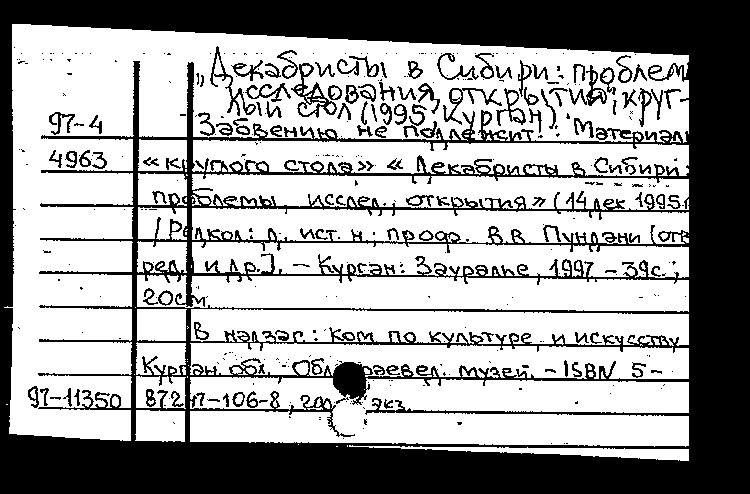 „Декабристы в Сибири: проблемы
исследования, открытия", круг-
лый стол (1995, Курган).
97-4 Забвению не подлежит!: Материалы
4963 «круглого стола» « Декабристы в Сибири:
проблемы, исслед., открытия» (14 дек. 1995г
/ Редкол: д. ист. н., проф. В.В. Пундани (отв
ред.) и др.]. – Курган: Зауралье, 1997. – 39с.;
20см.
В надзаг.: Ком по культуре и искусству
Курган. обл., Обл. краевед. музей. – ISBN 5-
97-11350 87247-106-8, экз.